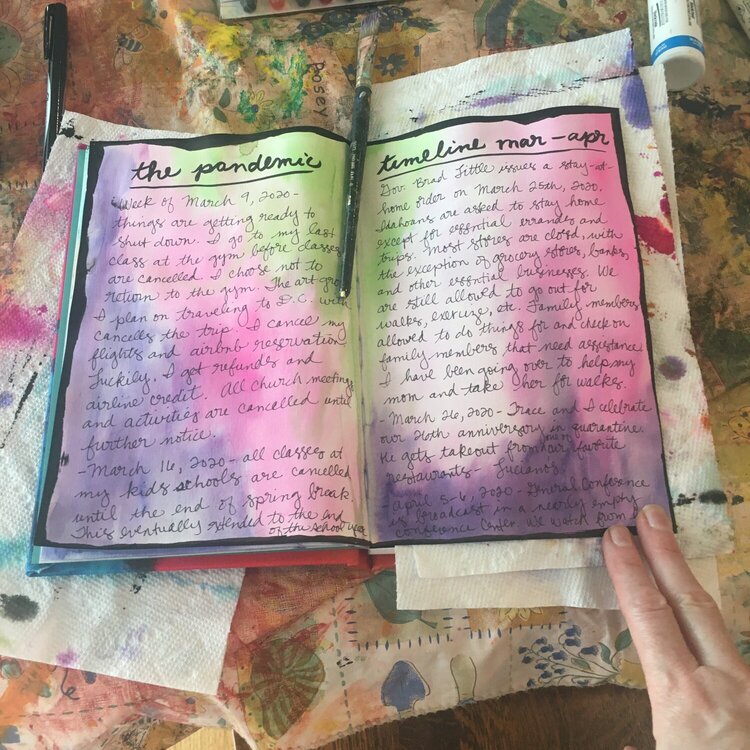 posey
the pandemic
Week of March 9, 2020-
things are getting ready to
shut down. I go to my last
class at the gym before classes
are cancelled. I choose not to
return to the gym. The art
I plan on traveling to D.C. with
cancells the trip. I cancel my
flights and airbnb reservation.
Luckily, I get refunds and
airline credit. All church meetings
and activities are cancelled until
further notice.
-March 16, 2020- all classes at
my kids schools are cancelled
until the end of spring break.
This eventually extended to the end
of the school year
timeline mar-apr
Gov. Brad Little issues a stay-at-
home order on March 25th, 2020.
Idahoans are asked to stay home
except for essential errands and
trips. Most stores are closed, with
the exception of grocery stores, banks,
and other essential businesses. We
are still allowed to go out for
walks, exercize, etc. Family members
allowed to do things for and check on
family members that need assistance
I have been going over to help my
mom and take her for walks.
-March 26, 2020- Trace and I celebrate
our 26th anniversary in quarantine.
He gets takeout from one of our favorite
restaurants- Luciano's.
-april 5-6, 2020- General Conference
is broadcast in a nearly empty
conference center. We watch from